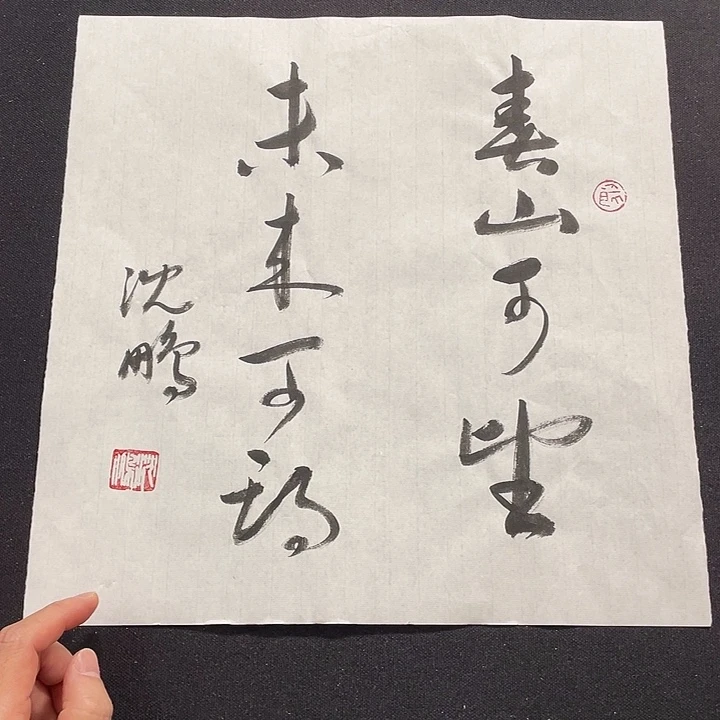 春山可望
未来可期
沈鹏